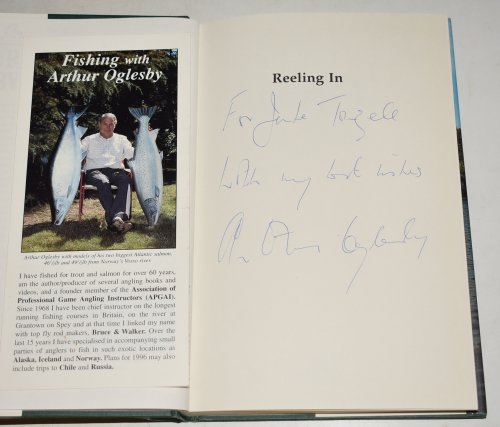 Fishing with
Arthur Oglesby
Arthur Oglesby with models of his two biggest Atlantic salmon,
from Norway's Vosso river
I have fished for trout and salmon for over 60 years,
am the author/producer of several angling books and
videos, and a founder member of the Association of
Professional Game Angling Instructors (APGAI).
Since 1968 I have been chief instructor on the longest
running fishing courses in Britain, on the river at
Grantown on Spey and at that time I linked my name
with top fly rod makers, Bruce & Walker. Over the
last 15 years I have specialised in accompanying small
parties of anglers to fish in such exotic locations as
Alaska, Iceland and Norway. Plans for 1996 may also
include trips to Chile and Russia.
Reeling In
For
with my best wishes
Arthur Oglesby